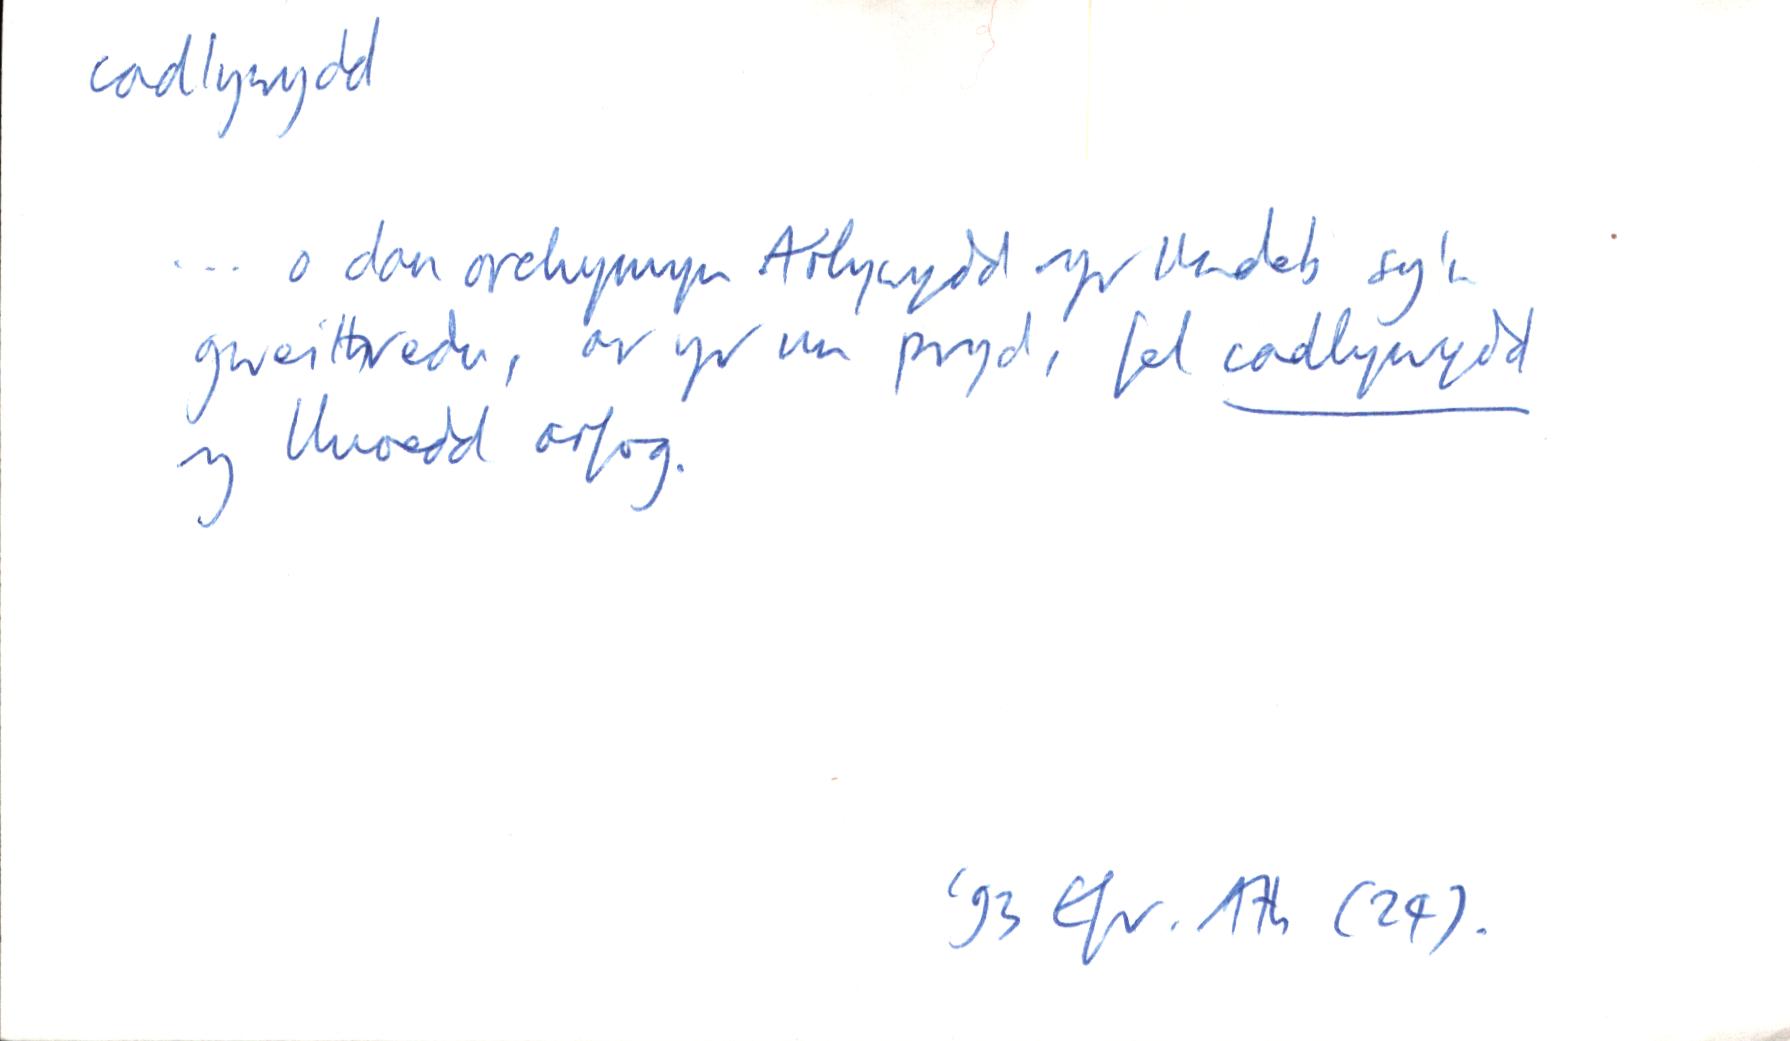 cadlywydd
... o dan orchymyn Arlywydd yr Undeb sy'n
gweithredu, ar yr un pryd, fel cadlywydd
y lluoedd arfog.
'93 Efr. Ath (24).